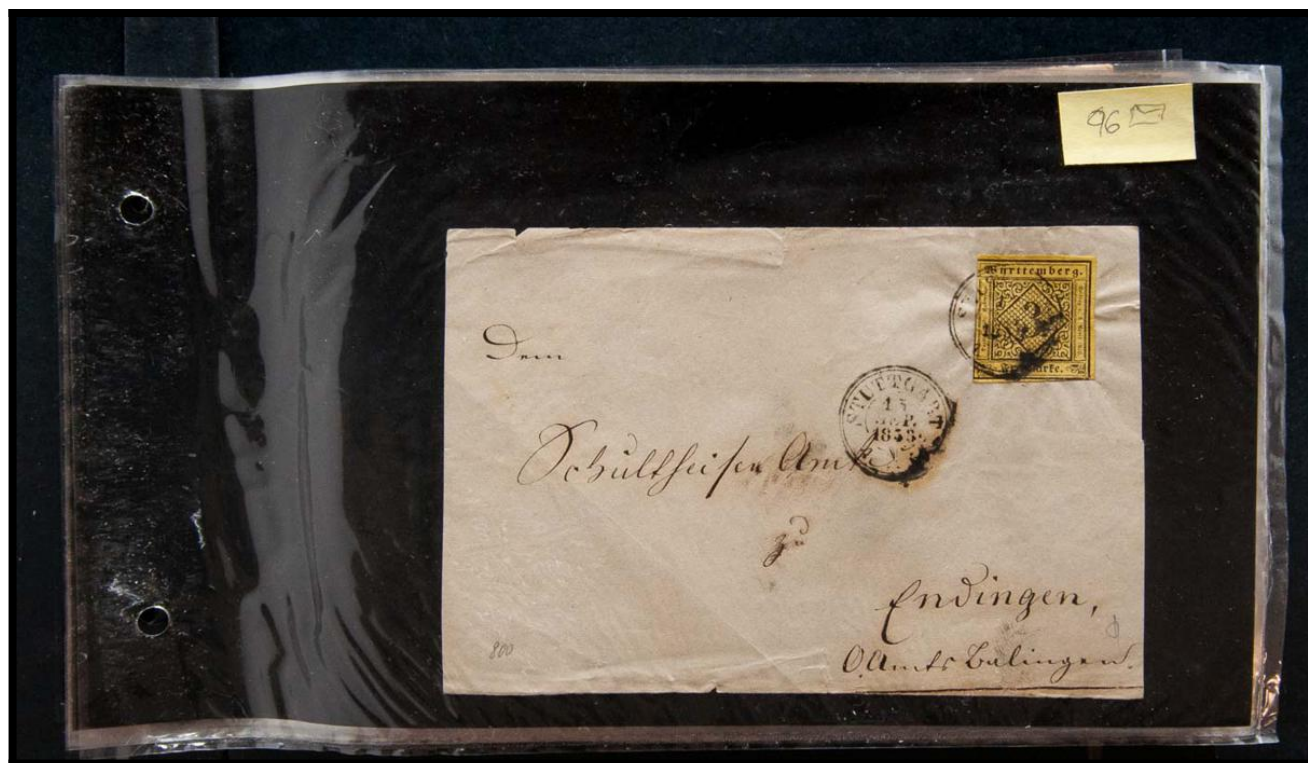 96
Württemberg.
3
Freimarke.
STUTTGART
15
SEP.
1853
Dem
Schultheisen Amt
zu
Endingen,
O.Amts Balingen.
800